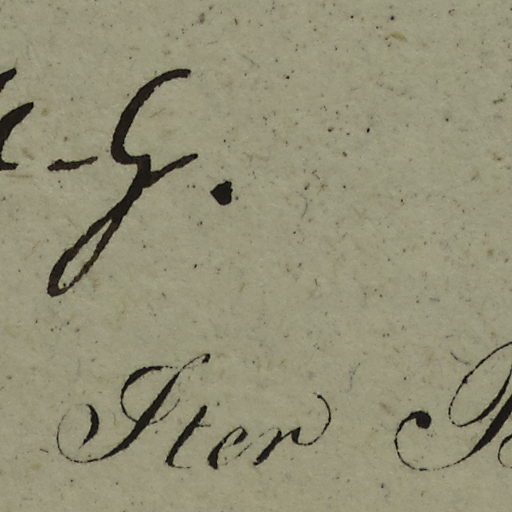 -G.
Iter